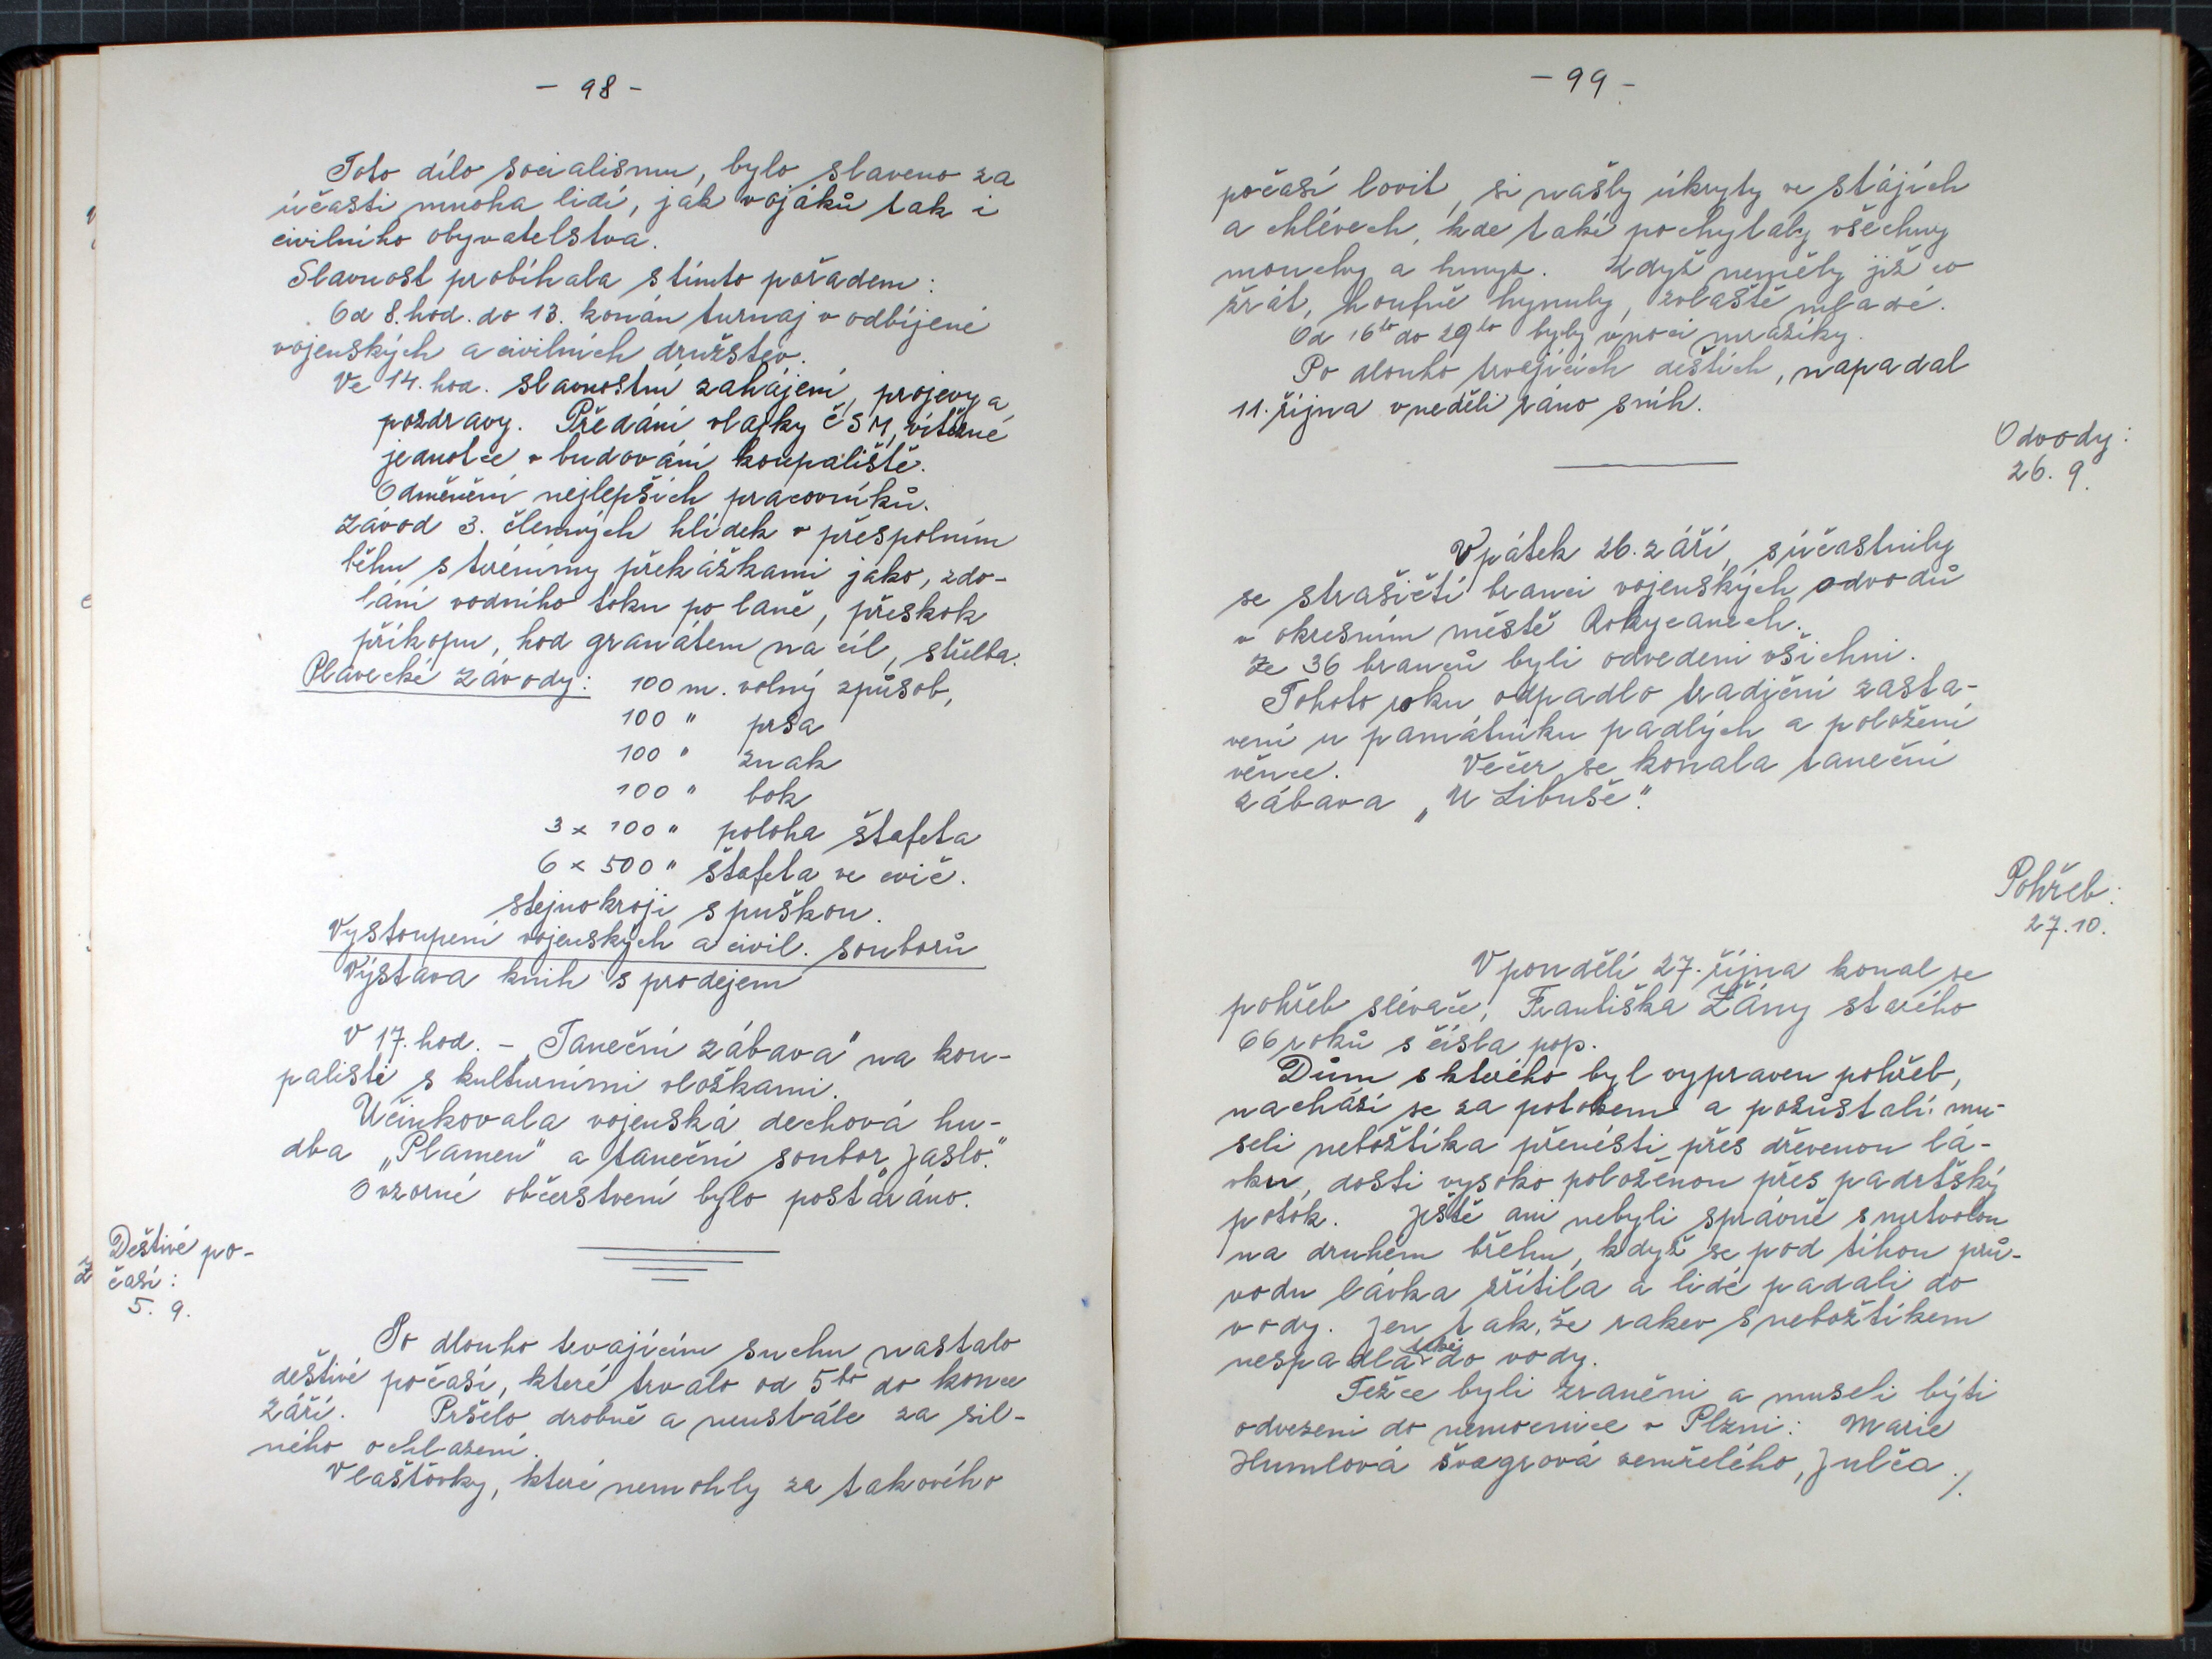 - 98 -
Toto dílo socialismu, bylo slaveno za
účasti mnoha lidí, jak vojáků tak i
civilního obyvatelstva.
Slavnost probíhala s tímto pořadem:
Od 8. hod. do 13. konán turnaj v odbíjené
vojenských a civilních družstev.
Ve 14. hod. slavnostní zahájení, projevy a
pozdravy. Předání vlajky ČSM, vítězné
jednotce v budování koupaliště.
Odměnění nejlepších pracovníků.
Závod 3. členných hlídek v přespolním
běhu s terénímy překážkami jako, zdo-
lání vodního toku po laně, přeskok
příkopu, hod granátem na cíl, střelba.
Plavecké závody: 100 m. volný způsob,
100 " prsa
100 " znak
100 " bok
3 x 100 " poloha štafeta
6 x 500 " štafeta ve cvič.
stejnokroji s puškou.
Vystoupení vojenských a civil. souborů
Výstava knih s prodejem
V 17. hod. - „Taneční zábava" na kou-
pališti s kulturními vložkami.
Učinkovala vojenská dechová hu-
dba „Plamen" a taneční soubor „Jaslo."
O vzorné občerstvení bylo postaráno.
Deštivé po-
časí:
5. 9.
Po dlouho trvajícím suchu nastalo
deštivé počasí, které trvalo od 5ho do konce
září. Pršelo drobně a neustále za sil-
ného ochlazení.
Vlaštovky, které nemohly za takového
- 99 -
počasí lovit, si našly úkryty ve stájích
a chlévech, kde také pochytaly všechny
mouchy a hmyz. Když neměly již co
žrát, houfně hynuly, zvlaště mladé.
Od 16to do 29to byly v noci mrazíky.
Po dlouho trvajících deštích, napadal
11. října v neděli ráno sníh.
Odvody:
26. 9.
V pátek 26. září, súčastnily
se strašičtí branci vojenských odvodů
v okresním městě Rokycanech.
Ze 36 branců byli odvedeni všichni.
Tohoto roku odpadlo tradiční zasta-
vení u památníku padlých a položení
věnce. Večer se konala taneční
zábava „U Libuše".
Pohřeb:
27. 10.
V pondělí 27. října konal se
pohřeb slévače, Františka Žány starého
66 roků s čísla pop.
Dům s kterého byl vypraven pohřeb,
nachází se za potokem a pozůstalí mu-
seli nebožtíka přenésti přes dřevenou lá-
vku, dosti vysoko položenou přes padrťský
potok. Ještě ani nebyli správně s mrtvolou
na druhém břehu, když se pod tíhou prů-
vodu lávka zřítila a lidé padali do
vody. Jen tak, že rakev s nebožtíkem
nespadla do vody.
Težce byli zraněni a museli býti
odvezeni do nemocnice v Plzni: Marie
Humlová švagrová zemřelého, Julča ./.